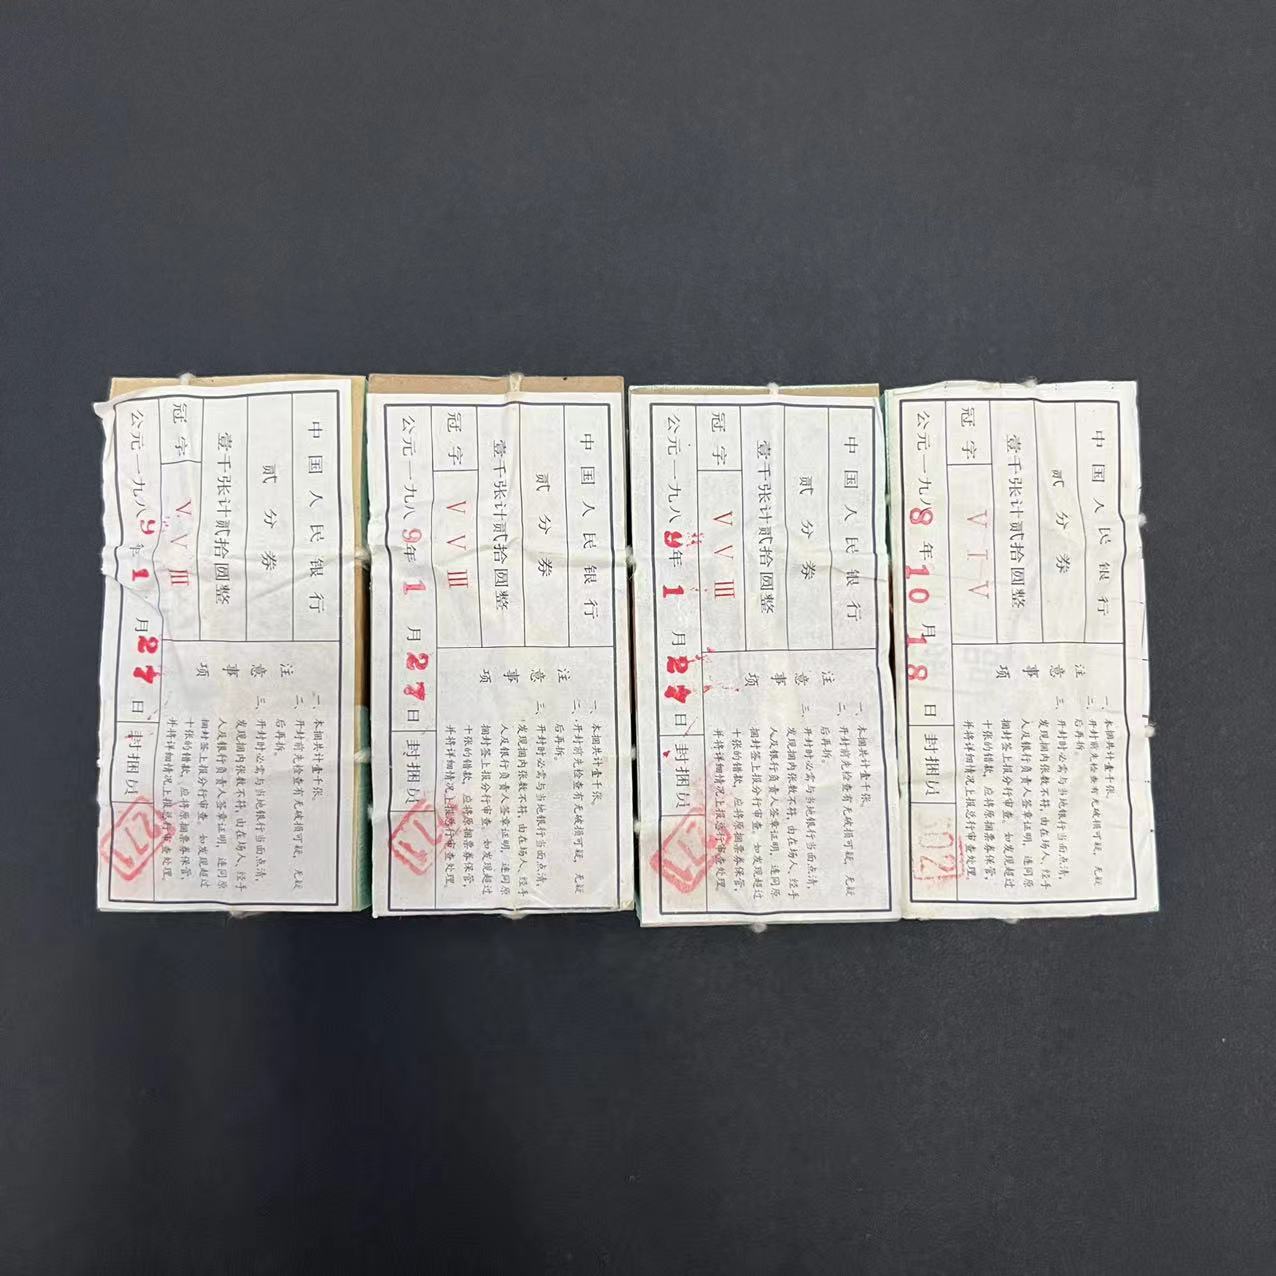 中国人民银行
贰分券
壹千张计贰拾圆整
冠字 V V III
公元一九八9年1月27日 封捆员 271
注意事项
一、本捆共计壹千张。
二、开封前先检查有无破损可疑，无疑
后再拆。
三、开封时必需与当地银行当面点清，
发现捆内张数不符，由在场人、经手
人及银行负责人签章证明，连同原
捆封签上报分行审查。如发现超过
十张的错款，应将原捆票券保管，
并将详细情况上报总行审查处理。
中国人民银行
贰分券
壹千张计贰拾圆整
冠字 V V III
公元一九八9年1月27日 封捆员 271
注意事项
一、本捆共计壹千张。
二、开封前先检查有无破损可疑，无疑
后再拆。
三、开封时必需与当地银行当面点清，
发现捆内张数不符，由在场人、经手
人及银行负责人签章证明，连同原
捆封签上报分行审查。如发现超过
十张的错款，应将原捆票券保管，
并将详细情况上报总行审查处理。
中国人民银行
贰分券
壹千张计贰拾圆整
冠字 V V III
公元一九八9年1月27日 封捆员 271
注意事项
一、本捆共计壹千张。
二、开封前先检查有无破损可疑，无疑
后再拆。
三、开封时必需与当地银行当面点清，
发现捆内张数不符，由在场人、经手
人及银行负责人签章证明，连同原
捆封签上报分行审查。如发现超过
十张的错款，应将原捆票券保管，
并将详细情况上报总行审查处理。
中国人民银行
贰分券
壹千张计贰拾圆整
冠字 V I V
公元一九八8年10月18日 封捆员 302
注意事项
一、本捆共计壹千张。
二、开封前先检查有无破损可疑，无疑
后再拆。
三、开封时必需与当地银行当面点清，
发现捆内张数不符，由在场人、经手
人及银行负责人签章证明，连同原
捆封签上报分行审查。如发现超过
十张的错款，应将原捆票券保管，
并将详细情况上报总行审查处理。